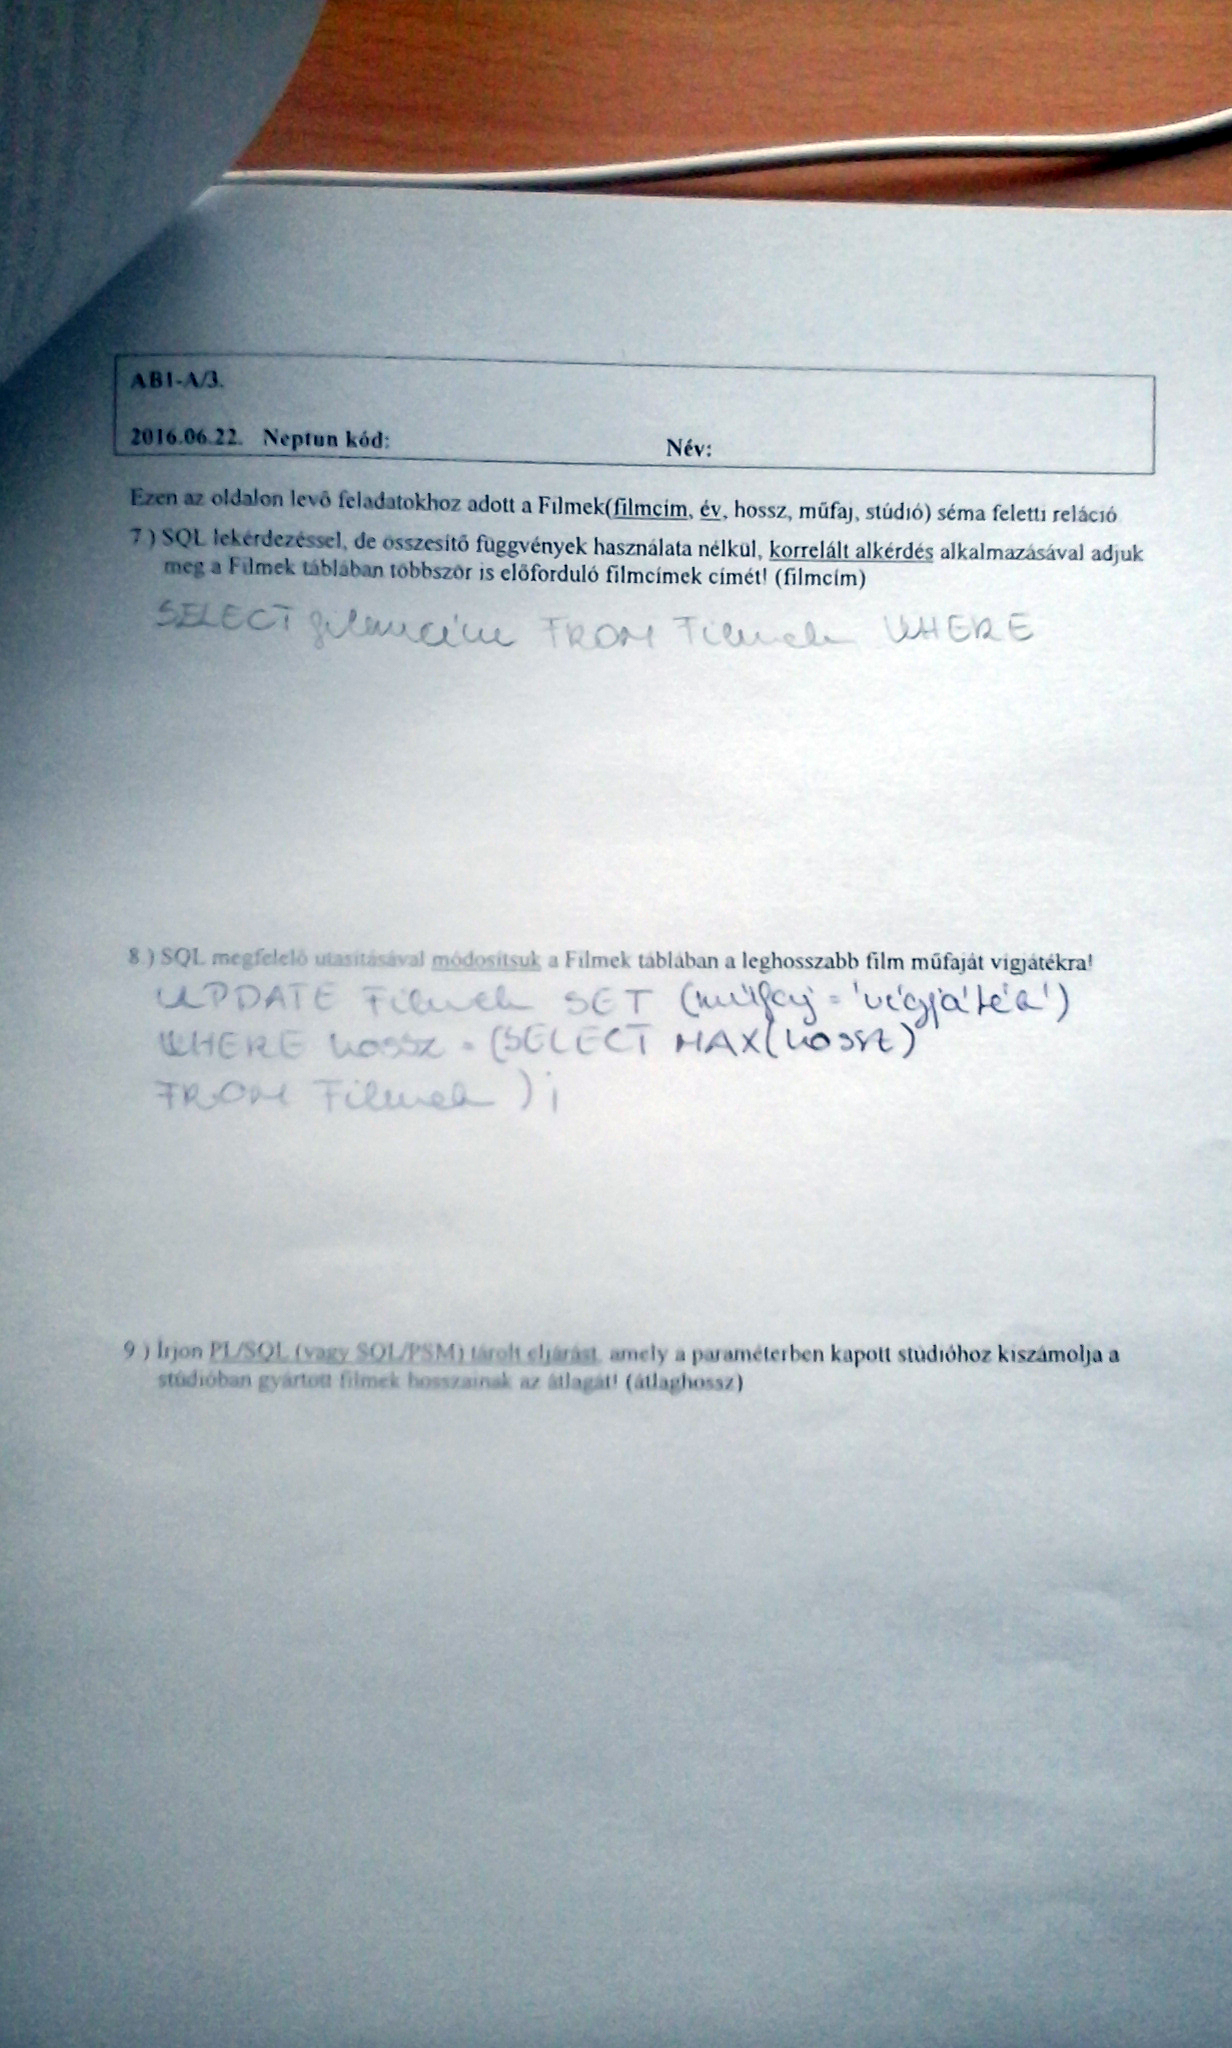 AB1-A/3.
2016.06.22. Neptun kód: Név:
Ezen az oldalon levő feladatokhoz adott a Filmek(filmcím, év, hossz, műfaj, stúdió) séma feletti reláció
7.) SQL lekérdezéssel, de összesítő függvények használata nélkül, korrelált alkérdés alkalmazásával adjuk
meg a Filmek táblában többször is előforduló filmcímek címét! (filmcím)
SELECT filmcím FROM Filmek WHERE
8.) SQL megfelelő utasításával módosítsuk a Filmek táblában a leghosszabb film műfaját vígjátékra!
UPDATE Filmek SET (műfaj = 'vígjáték')
WHERE hossz = (SELECT MAX(hossz)
FROM Filmek );
9.) Írjon PL/SQL (vagy SQL/PSM) tárolt eljárást, amely a paraméterben kapott stúdióhoz kiszámolja a
stúdióban gyártott filmek hosszainak az átlagát! (átlaghossz)